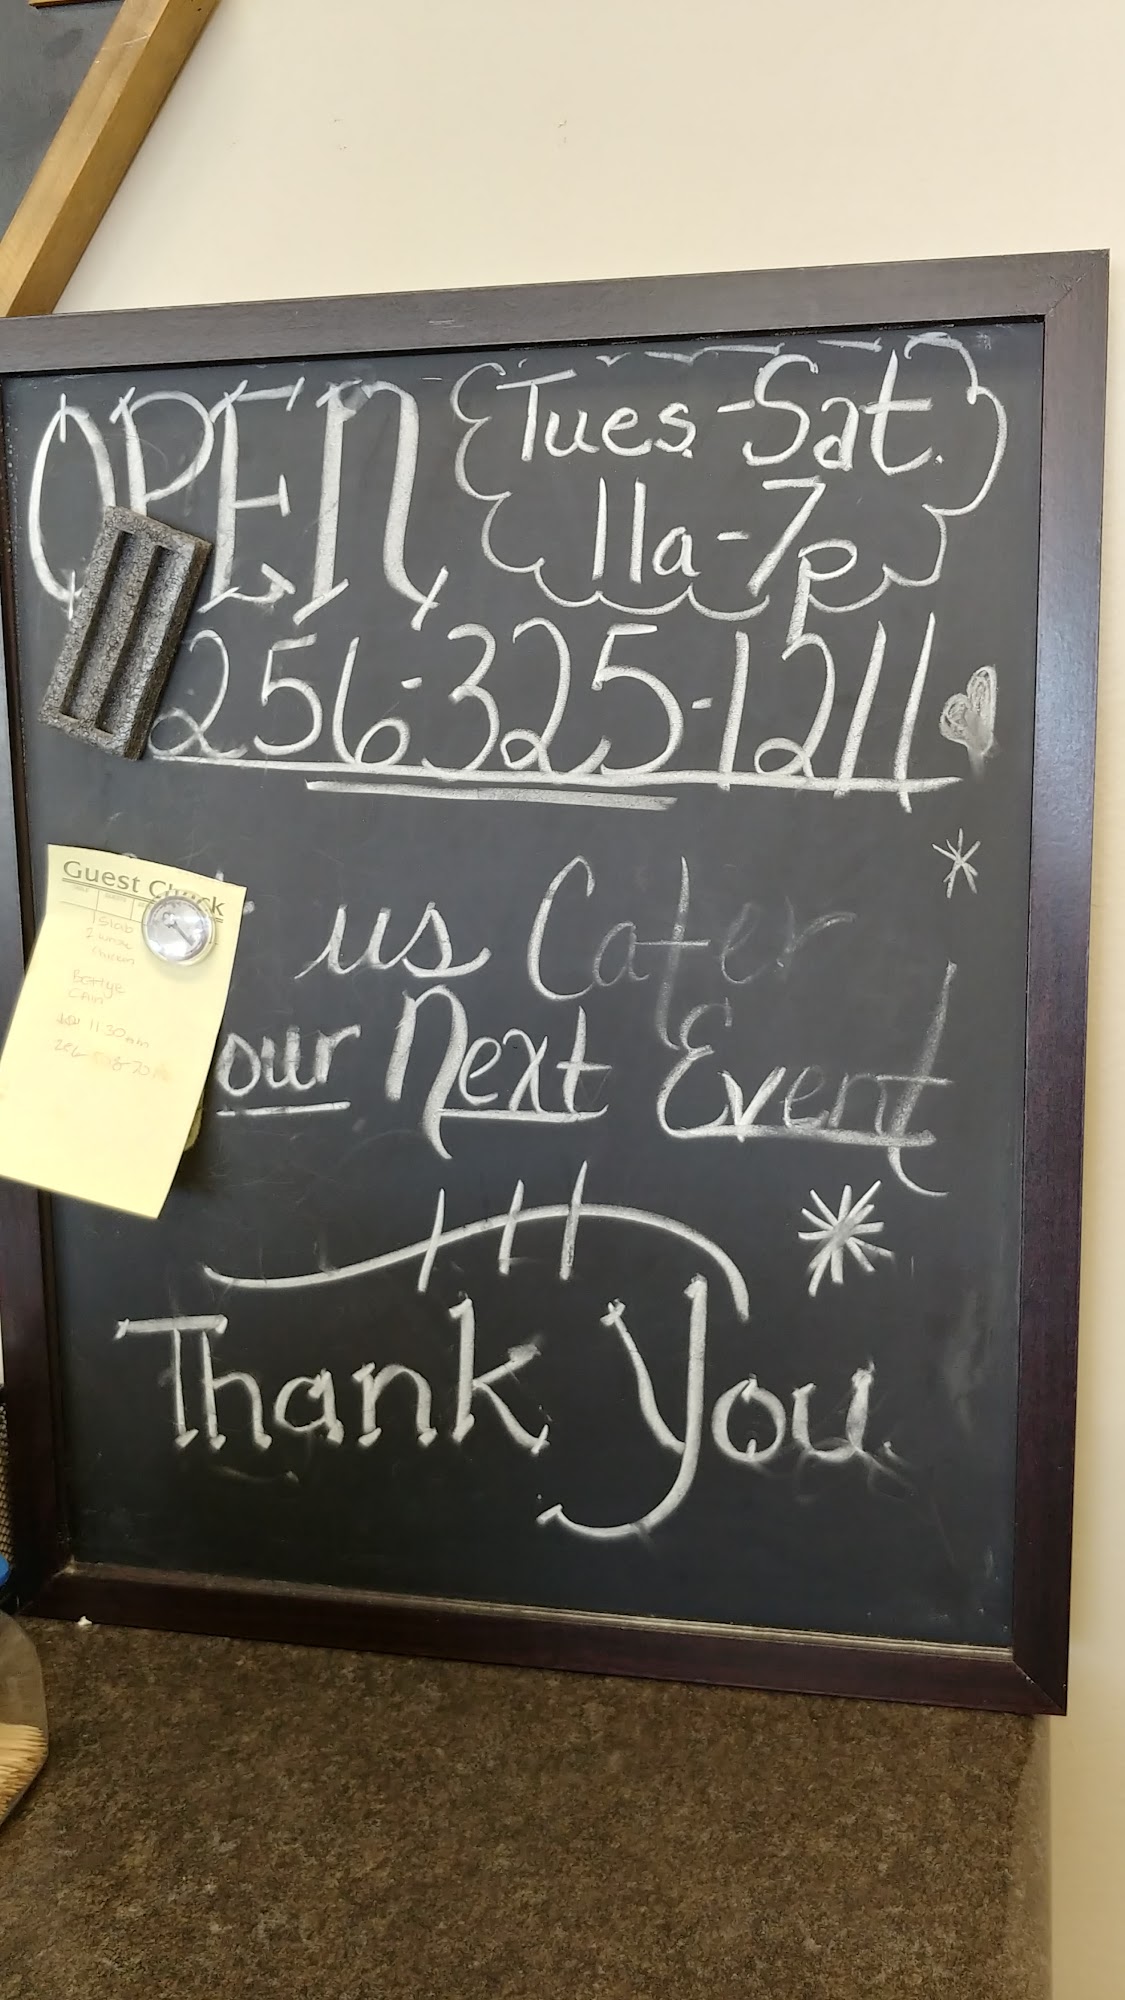 OPEN
Tues-Sat.
11a-7p
256-325-1211
us Cater
our Next Event
Thank You
Guest Check
1 Slab
2 whole
chicken
Bettye
Cain
11:30 am